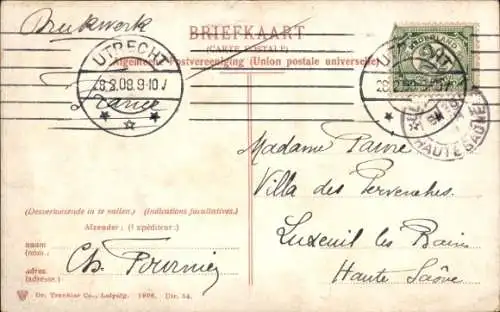 Drukwerk
BRIEFKAART
(CARTE POSTALE)
Algemeene Postvereeniging (Union postale universelle)
UTRECHT
28.2.09.9-10V
France
UTRECHT
NEDERLAND
HAUTE SAONE
Madame Faivre
Villa des Pervenches.
Luxeuil les Bains
Haute Saône
(Desverkiezende in te vullen.) (Indications facultatives.)
Afzender: (l'expéditeur:)
naam
(nom:
Ch. Fournier
adres
(adresse:)
Dr. Trenkler Co., Leipzig. 1906. Dir. 54.